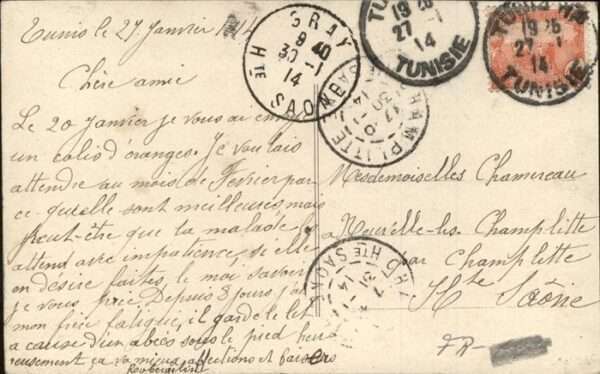 Tunis le 27 janvier 1914
Chère amie
Le 20 Janvier je vous ai
un colis d'oranges. Je voulais
attendre au mois de Fevrier par
ce-qu'elle sont meilleures, mais
peut-être que ta malade
attend avec impatience, si elle
en desire faites le moi savoir
je vous prie. Depuis 8 jours j'ai
mon frère fatigué, il garde le lit
a cause d'un abcès sous le pied heu
reusement ça va mieux affections et baisers
GRAY
9 40
30-1
14
Hte SAONE
TUNIS
19 25
27 -1
14
TUNISIE
TUNIS
19 25
27 -1
14
TUNISIE
CHAMPLITTE
17
30-1
14
Hte SAONE
7
31-1
14
Mesdemoiselles Chamereau
a Neuvelle-les-Champlitte
par Champlitte
Hte Saône
FR-